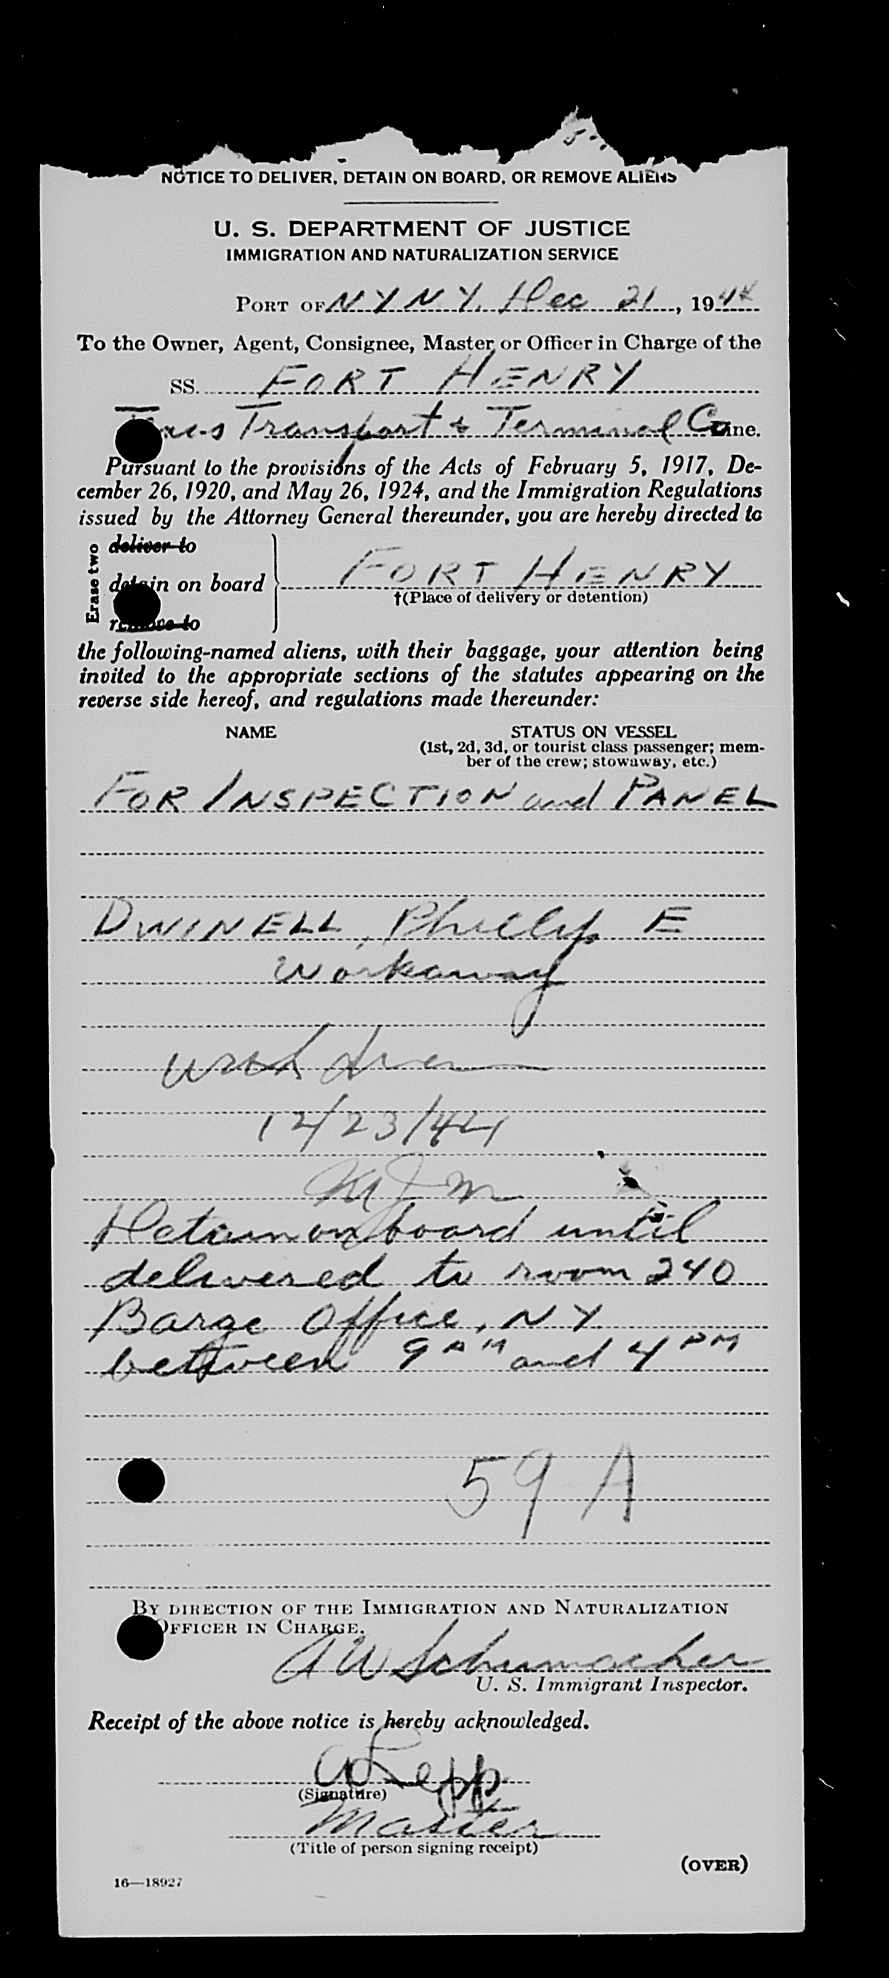 NOTICE TO DELIVER, DETAIN ON BOARD, OR REMOVE ALIENS
U. S. DEPARTMENT OF JUSTICE
IMMIGRATION AND NATURALIZATION SERVICE
PORT OF N Y N Y. Dec 21, 1944
To the Owner, Agent, Consignee, Master, or Officer in Charge of the
SS. FORT HENRY
Texas Transport & Terminal Co Line.
Pursuant to the provisions of the Acts of February 5, 1917, De-
cember 26, 1920, and May 26, 1924, and the Immigration Regulations
issued by the Attorney General thereunder, you are hereby directed to
Erase two
deliver to
detain on board
remove to
FORT HENRY
†(Place of delivery or detention)
the following-named aliens, with their baggage, your attention being
invited to the appropriate sections of the statutes appearing on the
reverse side hereof, and regulations made thereunder:
NAME STATUS ON VESSEL
(1st, 2d, 3d, or tourist class passenger; mem-
ber of the crew; stowaway, etc.)
FOR INSPECTION and PANEL
DWINELL, Phillip E
Workaway
12/23/44
MJM
Detain on board until
delivered to room 240
Barge Office, NY
between 9 AM and 4 PM
59 A
BY DIRECTION OF THE IMMIGRATION AND NATURALIZATION
OFFICER IN CHARGE.
A W Schumacher
U. S. Immigrant Inspector.
Receipt of the above notice is hereby acknowledged.
A Lepp
(Signature)
Master
(Title of person signing receipt)
(OVER)
16—18927